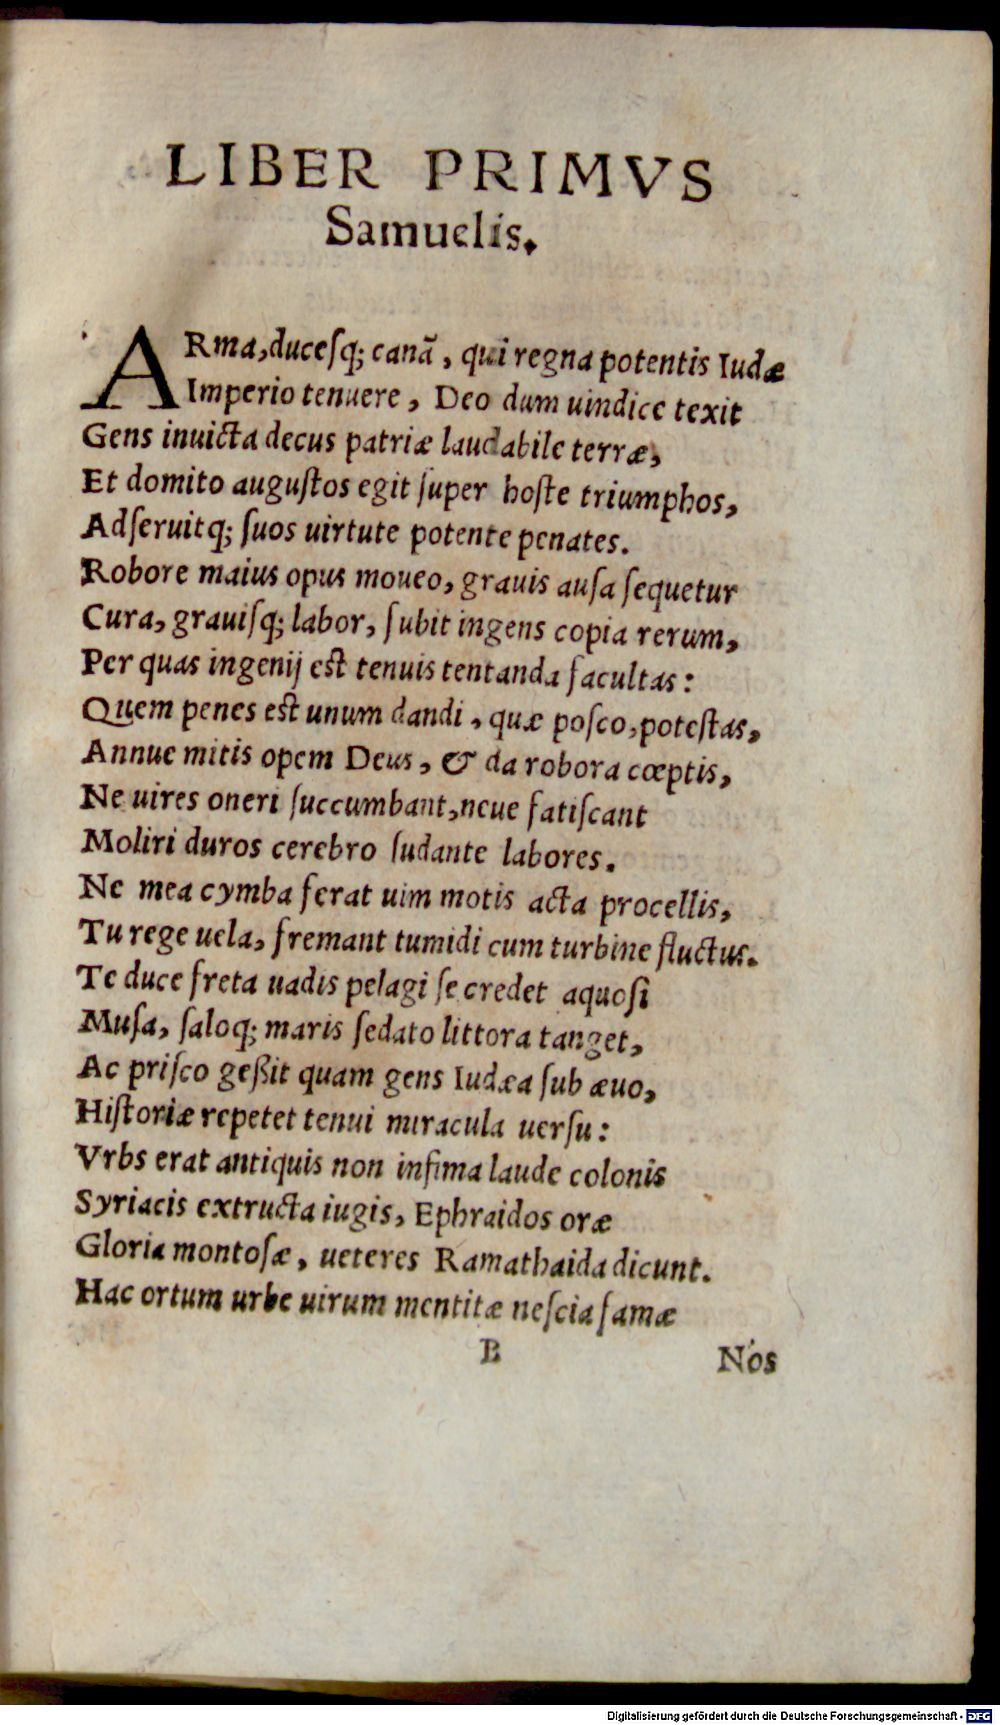 LIBER PRIMVS
Samuelis.
ARma, ducesq; canā, qui regna potentis Iudæ
Imperio tenuere, Deo dum uindice texit
Gens inuicta decus patriæ laudabile terræ,
Et domito auguſtos egit ſuper hoſte triumphos,
Adſeruitq; ſuos uirtute potente penates.
Robore maius opus moueo, grauis auſa ſequetur
Cura, grauiſq; labor, ſubit ingens copia rerum,
Per quas ingenij eſt tenuis tentanda facultas:
Quem penes eſt unum dandi, quæ poſco, poteſtas,
Annue mitis opem Deus, & da robora cœptis,
Ne uires oneri ſuccumbant, neue fatiſcant
Moliri duros cerebro ſudante labores.
Ne mea cymba ferat uim motis acta procellis,
Tu rege uela, fremant tumidi cum turbine fluctus.
Te duce freta uadis pelagi ſe credet aquoſi
Muſa, ſaloq; maris ſedato littora tanget,
Ac priſco geßit quam gens Iudæa ſub æuo,
Hiſtoriæ repetet tenui miracula uerſu:
Vrbs erat antiquis non infima laude colonis
Syriacis extructa iugis, Ephraidos oræ
Gloria montoſæ, ueteres Ramathaida dicunt.
Hac ortum urbe uirum mentitæ neſcia famæ
B
Nos
Digitalisierung gefördert durch die Deutsche Forschungsgemeinschaft - DFG